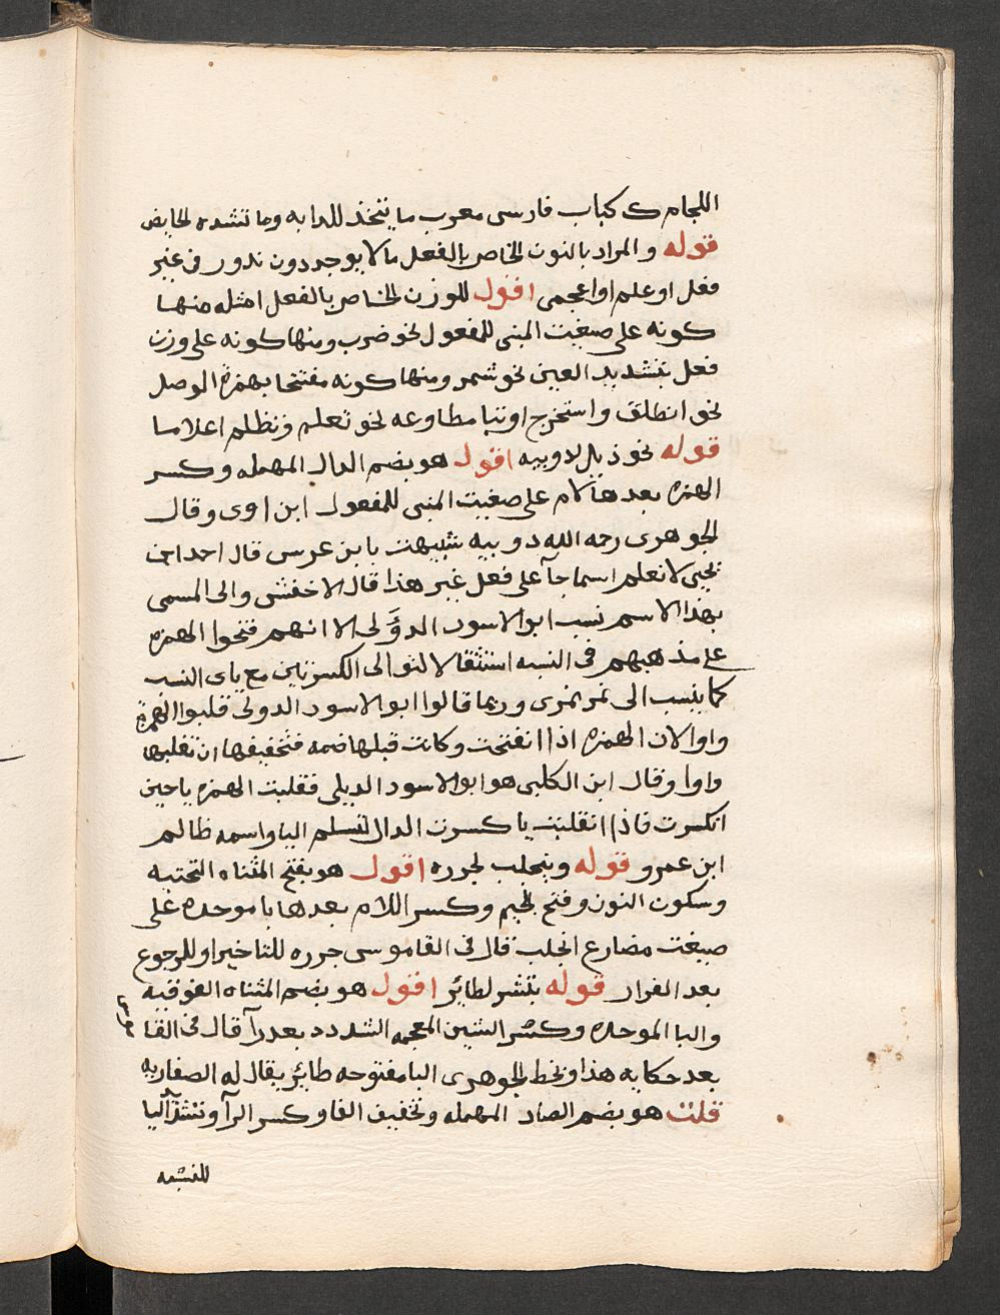 اللجام ككتاب فارسى معرب ما يتخذ للدابه وما تشده الحايض
قوله والمراد بالنون الخاص بالفعل ما لا يوجد دون ندور فى غير
فعل او علم او اعجمى اقول للوزن الخاص بالفعل امثله منها
كونه على صيغت المبنى للمفعول نحو ضرب ومنها كونه على وزن
فعل بتشديد العين نحو شمر ومنها كونه مفتتحا بهمزة الوصل
نحو انطلق واستخرج او بتا مطاوعه نحو تعلم وتظلم اعلاما
قوله نحو ذيل لدويبه اقول هو بضم الدال المهمله وكسر
الهمزه بعدها لام على صغيت المبنى للمفعول ابن اوى وقال
الجوهرى رحمه الله دويبه شبيهت بابن عرس قال احد ابن
يحيى لا نعلم اسما جآ على فعل غير هذا قال الاخفش والى المسمى
بهذا الاسم نسب ابو الاسود الدؤَلى الا انهم فتحوا الهمزه
على مذهبهم فى النسبه استثقالا لتوالى الكسرتين مع ياى النسب
كما ينسب الى نمر نمرى وربما قالوا ابو الاسود الدولى قلبوا الهمزة
واوا لان الهمزه اذا انفتحت وكانت قبلها ضمه فتخفيفها ان تقلبها
واوا وقال ابن الكلبى هو ابو الاسود الديلى فقلبت الهمزه يا حين
انكسرت فاذا انقلبت يا كسرت الدال لتسلم اليا واسمه ظالم
ابن عمرو قوله وينجلب لجرره اقول هو بفتح المثناه التحتيه
وسكون النون وفتح الجيم وكسر اللام بعدها با موحده على
صيغت مضارع انجلب قال فى القاموسى جرره للتاخير او للرجوع
بعد الفرار قوله بتشر لطائر اقول هو بضم المثناه الفوقيه
والبا الموحده وكسر الشين المعجمه الشدد بعد رآ قال فى القا
موس
بعد حكايه هذا وبخط الجوهرى البا مفتوحه طائر يقال له الصفاريه
قلت هو بضم الصاد المهمله وتخفيف الفا وكسر الرآ وتشد اليا